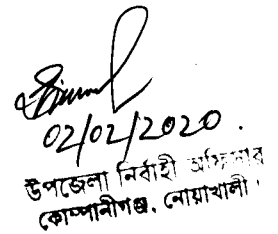 02/02/2020.
উপজেলা নির্বাহী অফিসার
কোম্পানীগঞ্জ, নোয়াখালী।